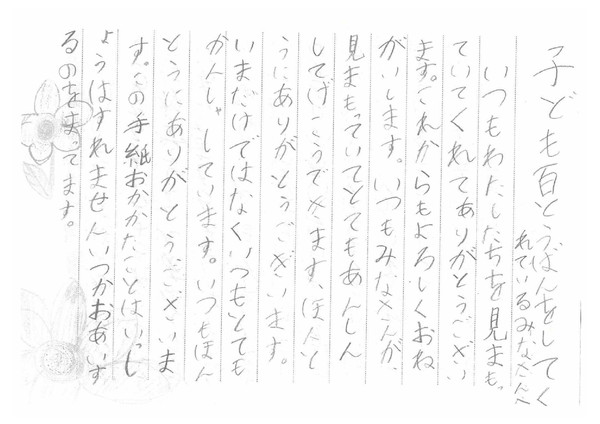 子ども百とうばんをしてく
れているみなさんへ
いつもわたしたちを見まも
ていてくれてありがとうござい
ます。これからもよろしくおね
がいします。いつもみなさんが、
見まもっていてとてもあんしん
してげこうできます、ほんと
うにありがとうございます。
いまだけではなくいつもとても
かんしゃしています。いつもほん
とうにありがとうございま
す。この手紙おかかたことはいっし
ょうはすれませんいつかおあいす
るのをまってます。